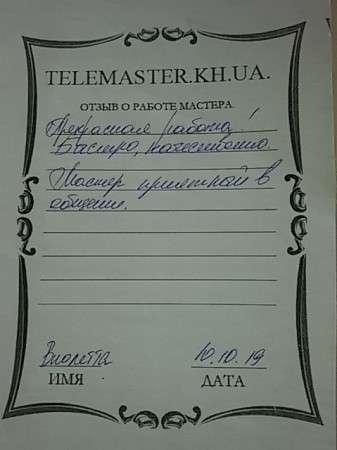 TELEMASTER.KH.UA.
ОТЗЫВ О РАБОТЕ МАСТЕРА.
Прекрасная работа!
Быстро, качественно.
Мастер приятный в
общении.
Виолетта
10.10.19
ИМЯ
ДАТА